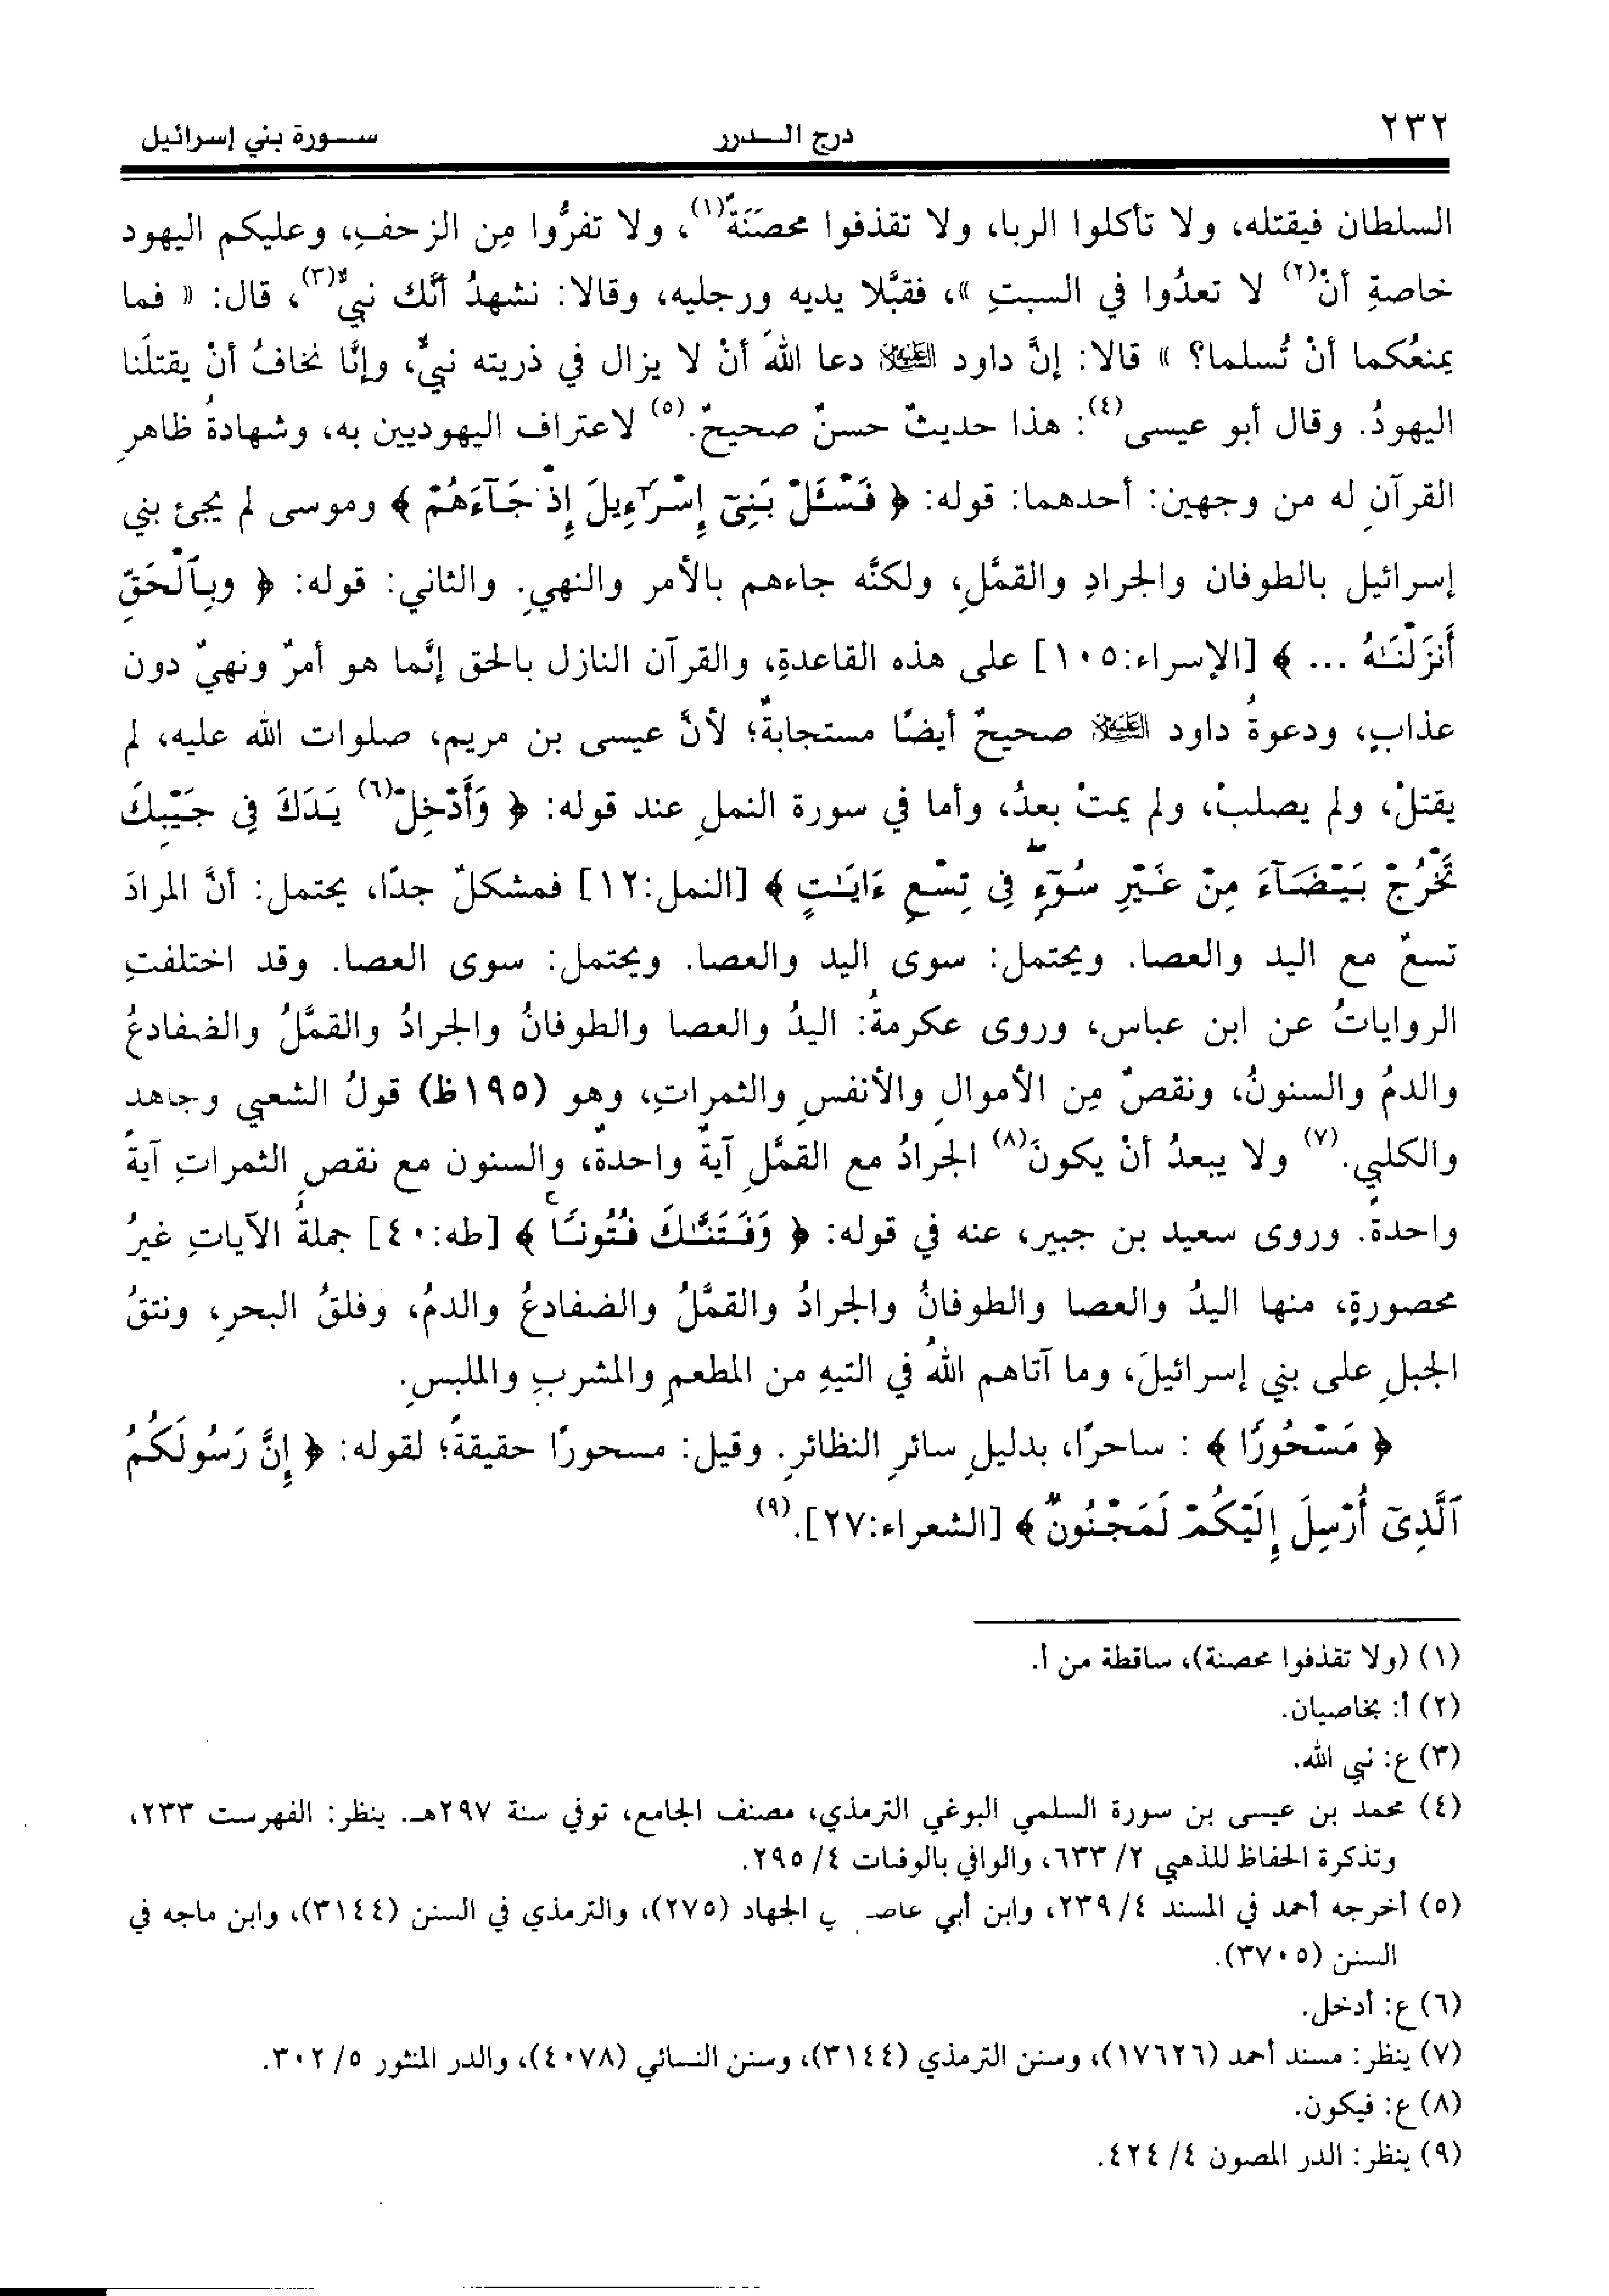 ٢٣٢ درج الـــدرر ســـورة بني إسرائيل
السلطان فيقتله، ولا تأكلوا الربا، ولا تقذفوا محصَنَةً(١)، ولا تفرُّوا مِن الزحفِ، وعليكم اليهود
خاصةِ أنْ(٢) لا تعدُوا في السبتِ »، فقبَّلا يديه ورجليه، وقالا: نشهدُ أنَّك نبيٌّ(٣)، قال: « فما
يمنعُكما أنْ تُسلما؟ » قالا: إنَّ داود العَلَيْه دعا اللهَ أنْ لا يزال في ذريته نبيٌّ، وإنَّا نخافُ أنْ يقتلَنا
اليهودُ. وقال أبو عيسى(٤): هذا حديثٌ حسنٌ صحيحٌ.(٥) لاعتراف اليهوديين به، وشهادةُ ظاهرِ
القرآنِ له من وجهين: أحدهما: قوله: ﴿ فَسْـَٔلْ بَنِىٓ إِسْرَٰٓءِيلَ إِذْ جَآءَهُمْ ﴾ وموسى لم يجئ بني
إسرائيل بالطوفان والجرادِ والقمَّلِ، ولكنَّه جاءهم بالأمر والنهيِ. والثاني: قوله: ﴿ وَبِٱلْحَقِّ
أَنزَلْنَـٰهُ ... ﴾ [الإسراء:١٠٥] على هذه القاعدةِ، والقرآن النازل بالحق إنَّما هو أمرٌ ونهيٌ دون
عذابٍ، ودعوةُ داود العَلَيْه صحيحٌ أيضًا مستجابةٌ؛ لأنَّ عيسى بن مريم، صلوات الله عليه، لم
يقتلْ، ولم يصلبْ، ولم يمتْ بعدُ، وأما في سورة النملِ عند قوله: ﴿ وَأَدْخِلْ(٦) يَدَكَ فِى جَيْبِكَ
تَخْرُجْ بَيْضَآءَ مِنْ غَيْرِ سُوٓءٍۖ فِى تِسْعِ ءَايَـٰتٍ ﴾ [النمل:١٢] فمشكلٌ جدًا، يحتمل: أنَّ المرادَ
تسعٌ مع اليد والعصا. ويحتمل: سوى اليد والعصا. ويحتمل: سوى العصا. وقد اختلفتِ
الرواياتُ عن ابن عباس، وروى عكرمةُ: اليدُ والعصا والطوفانُ والجرادُ والقمَّلُ والضفادعُ
والدمُ والسنونُ، ونقصٌ مِن الأموالِ والأنفسِ والثمراتِ، وهو (١٩٥ظ) قولُ الشعبي ومجاهد
والكلبيِ.(٧) ولا يبعدُ أنْ يكونَ(٨) الجرادُ مع القمَّلِ آيةً واحدةً، والسنون مع نقصِ الثمراتِ آيةً
واحدة. وروى سعيد بن جبير، عنه في قوله: ﴿ وَفَتَنَّـٰكَ فُتُونًاۚ ﴾ [طه:٤٠] جملةُ الآياتِ غيرُ
محصورةٍ، منها اليدُ والعصا والطوفانُ والجرادُ والقمَّلُ والضفادعُ والدمُ، وفلقُ البحرِ، ونتقُ
الجبلِ على بني إسرائيلَ، وما آتاهم اللهُ في التيهِ من المطعمِ والمشربِ والملبسِ.
﴿ مَسْحُورًا ﴾ : ساحرًا، بدليلِ سائرِ النظائرِ. وقيل: مسحورًا حقيقةً؛ لقوله: ﴿ إِنَّ رَسُولَكُمُ
ٱلَّذِىٓ أُرْسِلَ إِلَيْكُمْ لَمَجْنُونٌ ﴾ [الشعراء:٢٧].(٩)
(١) (ولا تقذفوا محصنة)، ساقطة من أ.
(٢) أ: بخاصيان.
(٣) ع: نبي الله.
(٤) محمد بن عيسى بن سورة السلمي البوغي الترمذي، مصنف الجامع، توفي سنة ٢٩٧هـ. ينظر: الفهرست ٢٣٣،
وتذكرة الحفاظ للذهبي ٢/ ٦٣٣، والوافي بالوفيات ٤/ ٢٩٥.
(٥) أخرجه أحمد في المسند ٤/ ٢٣٩، وابن أبي الجهاد (٢٧٥)، والترمذي في السنن (٣١٤٤)، وابن ماجه في
السنن (٣٧٠٥).
(٦) ع: أدخل.
(٧) ينظر: مسند أحمد (١٧٦٢٦)، وسنن الترمذي (٣١٤٤)، وسنن النسائي (٤٠٧٨)، والدر المنثور ٥/ ٣٠٢.
(٨) ع: فيكون.
(٩) ينظر: الدر المصون ٤/ ٤٢٤.